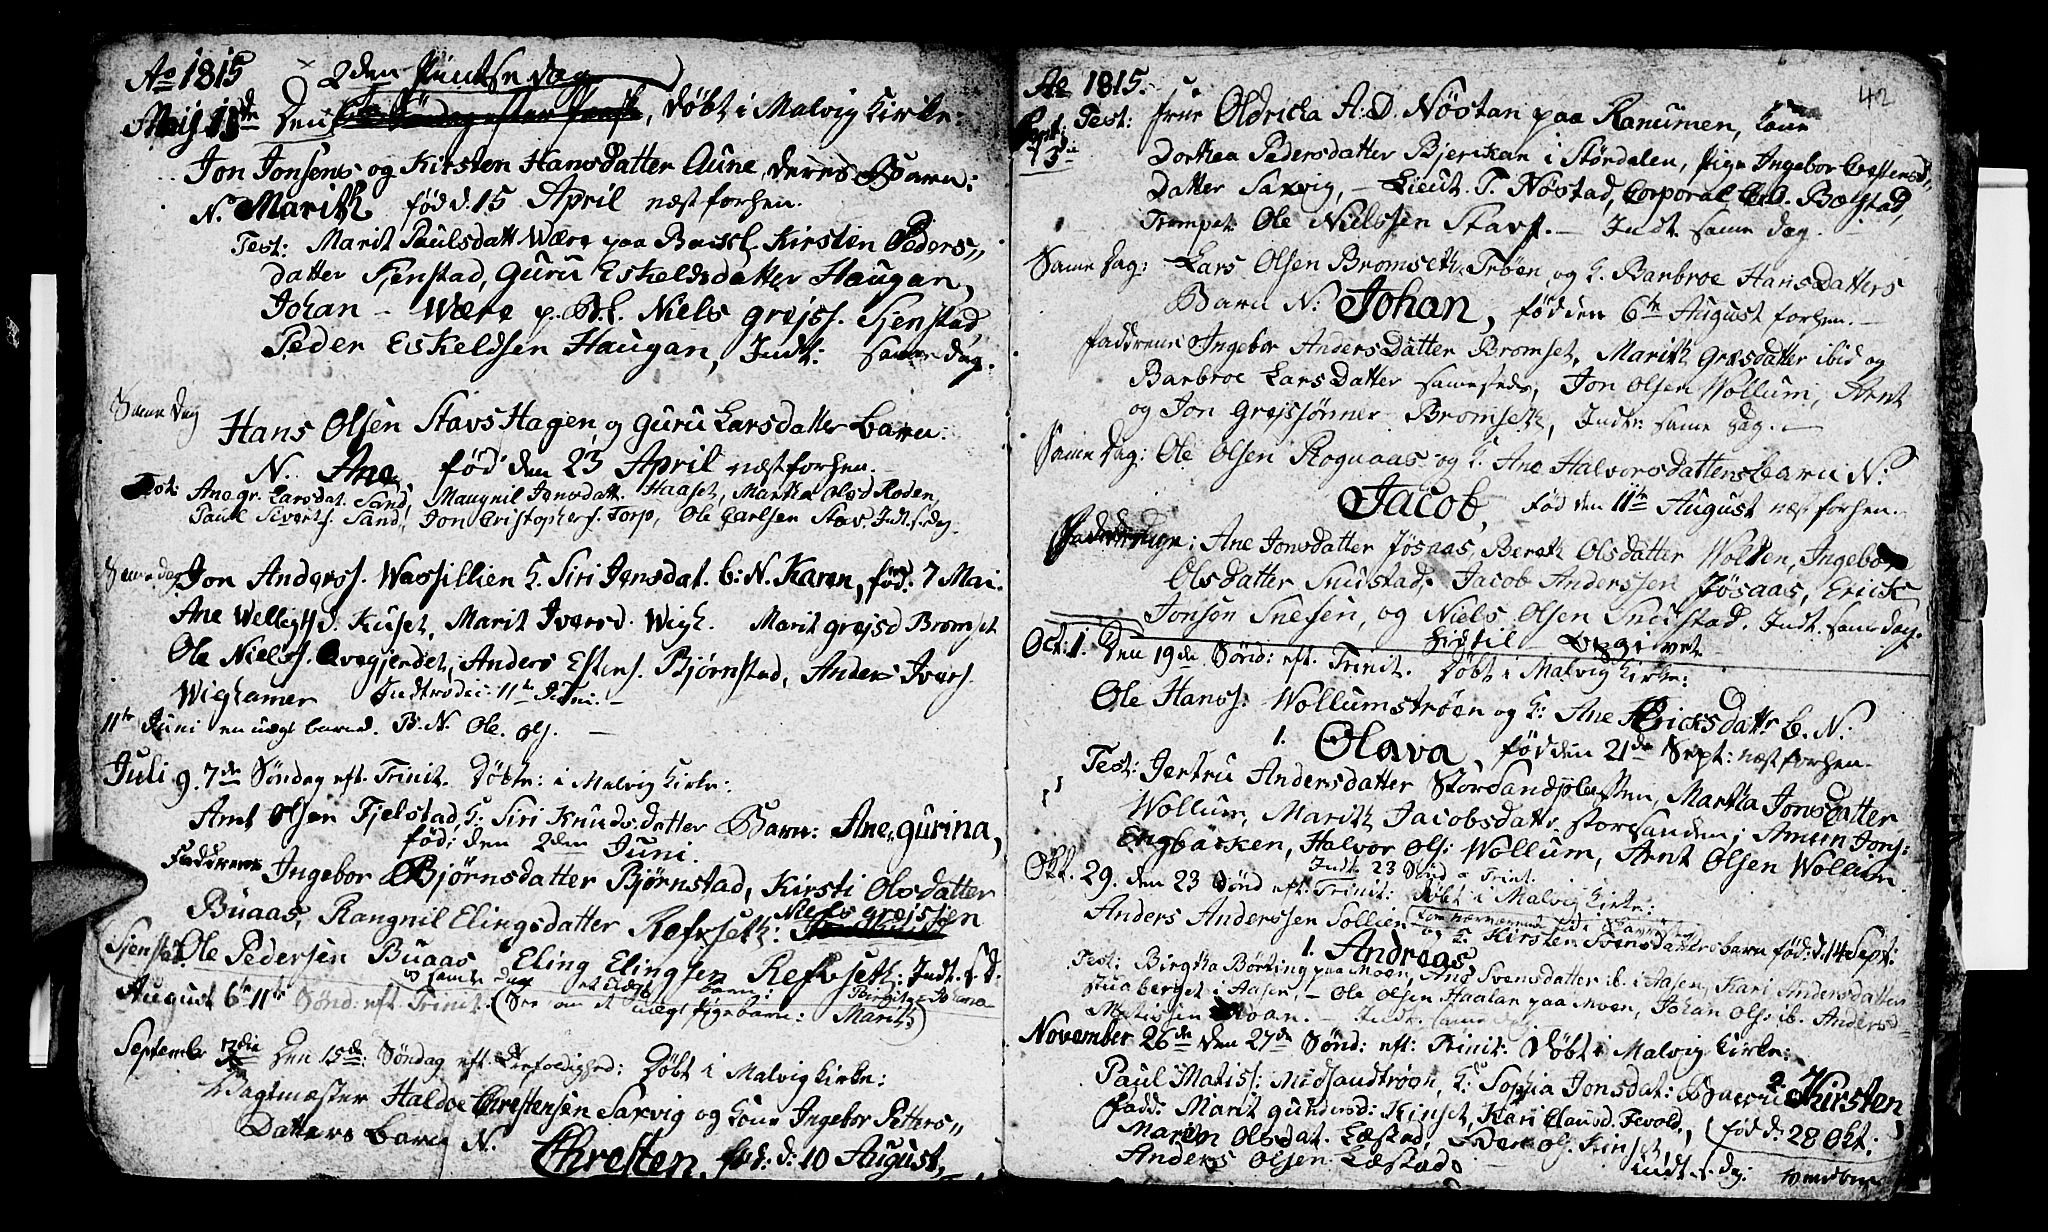 Ao 1815
2den Pintse dag
Maij 15de Den, døbt i Malvig Kirke:
Jon Jonsens og Kirsten Hansdatter Aune, deres Barn:
N. Marith fød d. 15 April næstforhen.
Test: Marit Paulsdatt Wære paa Kirsten Peders,,
datter Sjenstad, Guru Eskeldsdatter Haugan,
Johan - Wære p. Niels grejss. Sjenstad
Peder Eskeldsen Haugan, Indt: samme dag.
Same dag
Hans Olsen StavsHagen, og Guru Larsdatter barn:
N. Ane, fød den 23 April næstforhen.
Test: Ane gr. Larsdat. Sand, Maugnil Jonsdatt. Haaset, Martha Olsd Roden,
Paul Siverts. Sand, Jon Cristophers. Torp, Ole Carlsen Stav. Indt. s. dag.
Same dag Jon Anderss. Wassillien H. Siri Jensdat. b: N. Karen, fød. 7 Mai.
Ane d. Kuset, Marit Iversd. Wigh. Marit grejsd Bromset
Ole Nielss. Qvegjerdet, Anders Estens. Bjørnstad, Anders Ivers.
Wighamer Indtrødci: 11te Juni. -
11te Juni en uægt barn d. B. N. Ole. -
Juli 9. 7de Søndag eft. Trinit. Døbte: i Malvig Kirke:
Arnt Olsen Fjelstad, H. Siri Knudsdatter Barn: Ane,, gurina,
fød: den 2den Juni.
Faddrene Ingebor Bjørnsdatter Bjørnstad, Kirsti Olsdatter
Buaas, Rangnil Elingsdatter Refseth: Niels grejssen
Sjenstad. Ole Pedersen Buaas Eling Elingsen Refseth: Indt. s. d:
August 6te 11te Sønd: eft Trinit. (See om et uægt pigebarn: Marith)
Septembr Den 15de: Søndag eft. Trefoldighed: Døbt i Malvig Kirke:
Vagtmæster Haldoe Chrestensen Saxvig og Kone Ingebor Petters,,
Datters barn N.
Chresten, fød: d: 10 August,
Ao 1815. 42
Sept: Test: Frue Oldricka A. D. Nøstan paa Ranumen, Kone
Dorthea Pedersdatter Bjerkan i Størdalen, Pige Ingebor
Datter Saxvig, - Lieut. T. Nøstad, Corporal Bøgstad,
Trompet: Ole Nielssen Stavs. - Indt. same dag. -
Same dag: Lars Olsen Bromseth, Trøen, og H. Barbroe HansDatters
Barn N: Johan, fød den 6te August forhen. -
Faddrene Ingebor Anders Datter Bromset, Marith græsdatter ibid og
Barbroe LarsDatter samesteds, Jon Olsen Wollum, Arnt
og Jon grejssønner Bromseth, Indtr: same dag. -
Same dag: Ole Olsen Rognaas og H. Ane Halvorsdatters barn N:
Jacob, fød den 11te August næstforhen.
Ane Jonsdatter Jøsaas, Bereth Olsdatter Wolden, Ingebor
Olsdatter Snustad, Jacob Anderssen Jøsaas, Erick
Jonsøn Snesen, og Niels Olsen Snustad. Indt. same dag.
Hidtil Opgivet
Oct: 1. Den 19de Sønd: eft. Trinit. Døbt i Malvig Kirke:
Ole Hanss: Wollumstrøen og H: Ane Ericksdattr b. N:
1. Olava, fød den 21de Sept: næstforhen.
Test: Jertru Andersdatter Storsandpladsen, Martha Jonsdatter
Wollum, Marith Jacobsdattr storesanden, Amun Jons:
Engbacken, Halvor Ols: Wollum, Arnt Olsen Wollum.
Indt. 23 Sønd a Trint.
Okt. 29. den 23 Sønd eft: Trinit: Døbt i Malvig Kirke:
Anders Anderssen Sollien
og H. Kirsten Svensdatters barn fød: d. 14 Sept:
1. Andreas
Test: Birgitha Børting paa Moen, Ane Svensdatter ib. i Aasen, Kari Andersdatter
Stuaberget i Aasen, - Ole Olsen Haalan paa Moen, Johan Ols: ib. Anders
Matissen Moan. - Indt: same dag
November 26de den 27de Sønd: eft: Trinit: Døbt i Malvig Kirke:
Paul Matiss: Midsandtrøen, H: Sophia Jonsdat: Barn 2. Kirsten
Fadd: Marit Gundersd: Kinset, Kari Clausd. Fevold, (fød d: 28 Okt:
Maren Olsdat. Læstad, Peder Ols. Kinset,
Anders Olsen Læstad. Indt. s. dag.